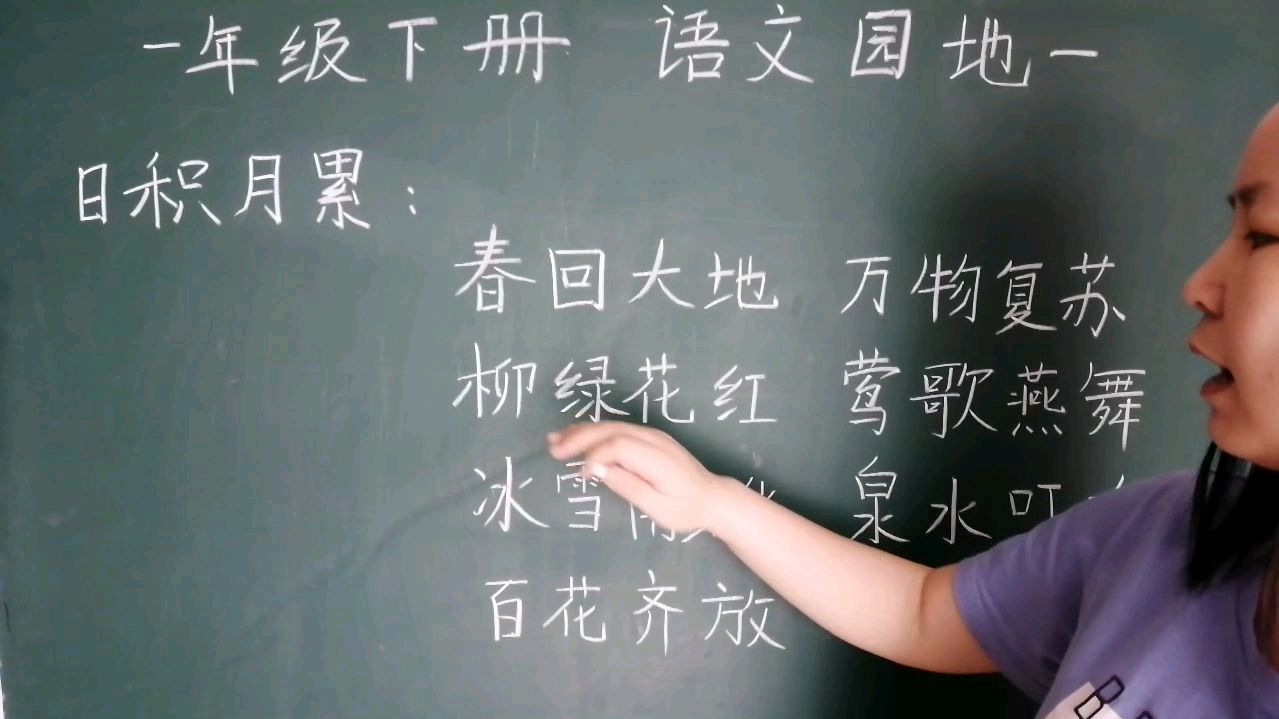 一年级下册 语文园地一
日积月累：
春回大地 万物复苏
柳绿花红 莺歌燕舞
冰雪 泉水叮
百花齐放